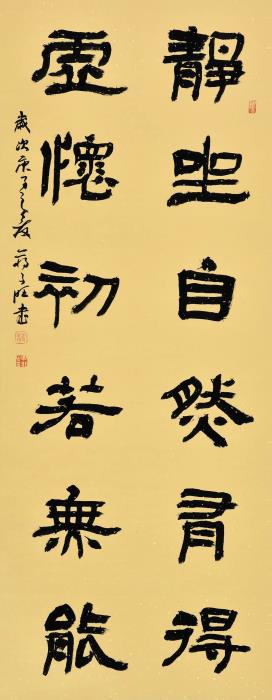 靜坐自然有得
虛懷初若無能
歲次庚子之夏 蔣子旺書